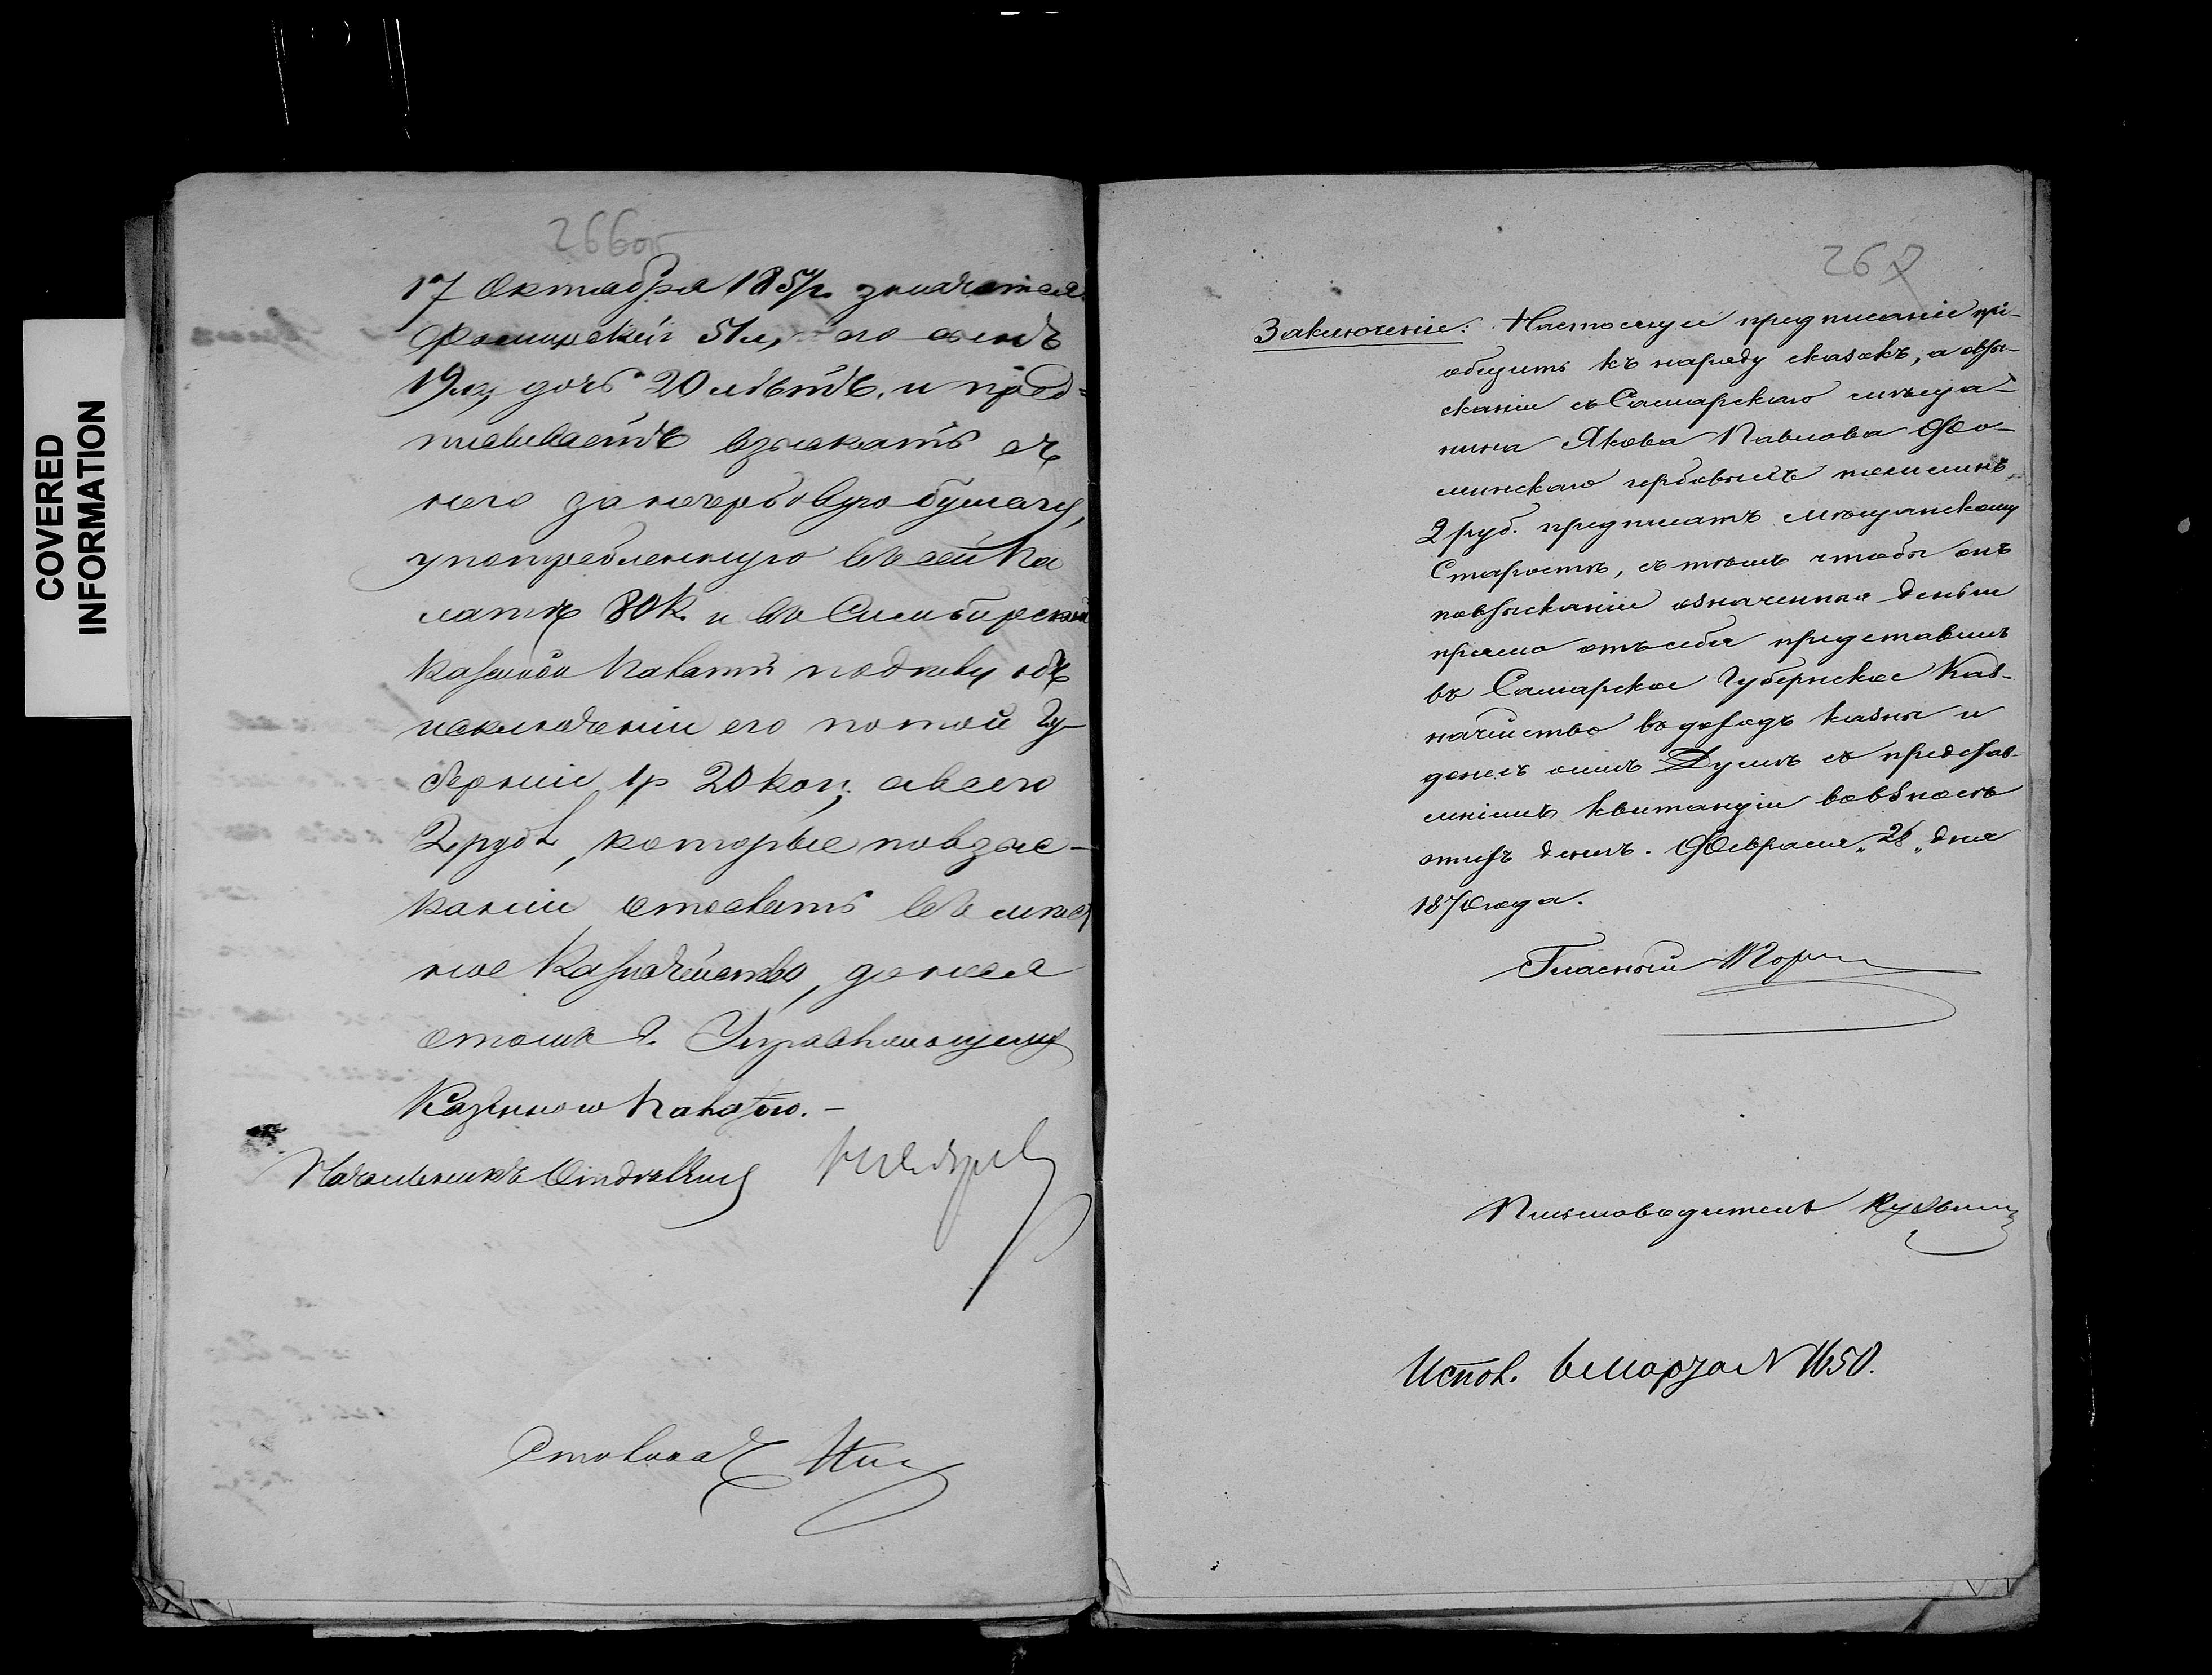 COVERED
INFORMATION
266об
17 Октября 1857г. значится
Фоминскій 51 л, его сынъ
19 л, дочь 20 лѣтъ. и пред=
писываетъ взыскать съ
него за негербовую бумагу,
употребленную въ сей Па
латѣ 80 к. и въ Симбирской
Казенной Палатѣ по дѣлу объ
исключеніи его по той Гу-
берніи 1 р 20 коп, а всего
2 руб, которые по взыс-
каніи отослать въ мѣст
ное Казначейство, донеся
о томъ Г. Управляющему
Казенною Палатою. -
Начальникъ Отдѣленія
Столонач
267
Заключеніе: Настоящее предписаніе прі-
общить къ наряду сказокъ, а о взы-
сканіи съ Самарскаго мѣща-
нина Якова Павлова Фо-
минскаго гербовыхъ пошлинъ
2 руб. предписать Мѣщанскому
Старостѣ, съ тѣмъ чтобы онъ
по взысканіи означенныя деньги
прямо отъ себя представилъ
въ Самарское Губернское Каз-
начейство въ доходъ казны и
донесъ онымъ Думѣ съ представ-
леніемъ квитанціи въ взносѣ
этихъ денегъ. Февраля „28„ дня
1870 года.
Гласный
Письмоводитель
Испол. 6 Марта N 1650.